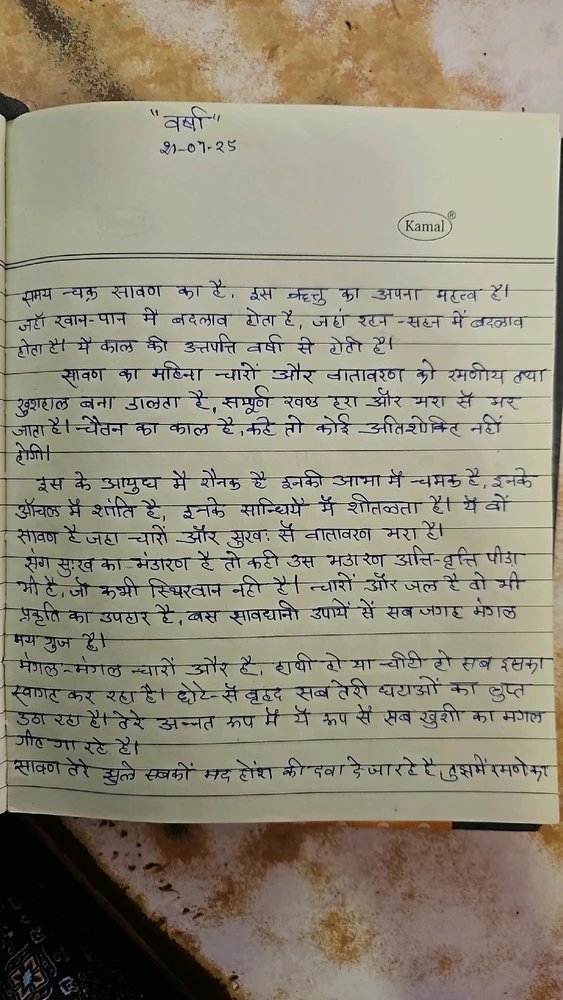 "वर्षा"
21-07-25
Kamal®
समय चक्र सावण का है, इस ऋतु का अपना महत्व है।
जहाँ खान-पान में बदलाव होता है, जहां रहन-सहन में बदलाव
होता है। ये काल की उत्तपत्ति वर्षा से होती है।
सावण का महिना चारों और वातावरण को रमणीय तथा
खुशहाल बना डालता है, सम्पूर्ण खण्ड हरा और भरा सें भर
जाता है। चैतन का काल है, कहे तो कोई अतिशोक्ति नहीं
होगी।
इस के आयुध में रौनक है इनकी आभा में चमक है, इनके
आँचल में शांति है, इनके सान्धियें में शीतलता है। यें वों
सावण है जहा चारों और सुखः सें वातावरण भरा है।
संग सुःख का भंडारण है तो कही उस भडारण अत्ति-वृत्ति पीडा
भी है, जों कभी स्थिरवान नही है। चारों और जल है वो भी
प्रकृति का उपहार है, बस सावधानी उपायें सें सब जगह मंगल
मय गुज है।
मंगल-मंगल चारों और है, हाथी हो या चीटी हो सब इसका
स्वागत कर रहा है। छोटे-सें वृहद सब तेरी घटाओं का लुप्त
उठा रहा है। तेरे अन्नत रूप में यें रूप सें सब खुशी का मगल
गीत गा रहे है।
सावण तेरे झुले सबकों मद होंश की दवा दे जा रहे है, तुझमें रमणे का